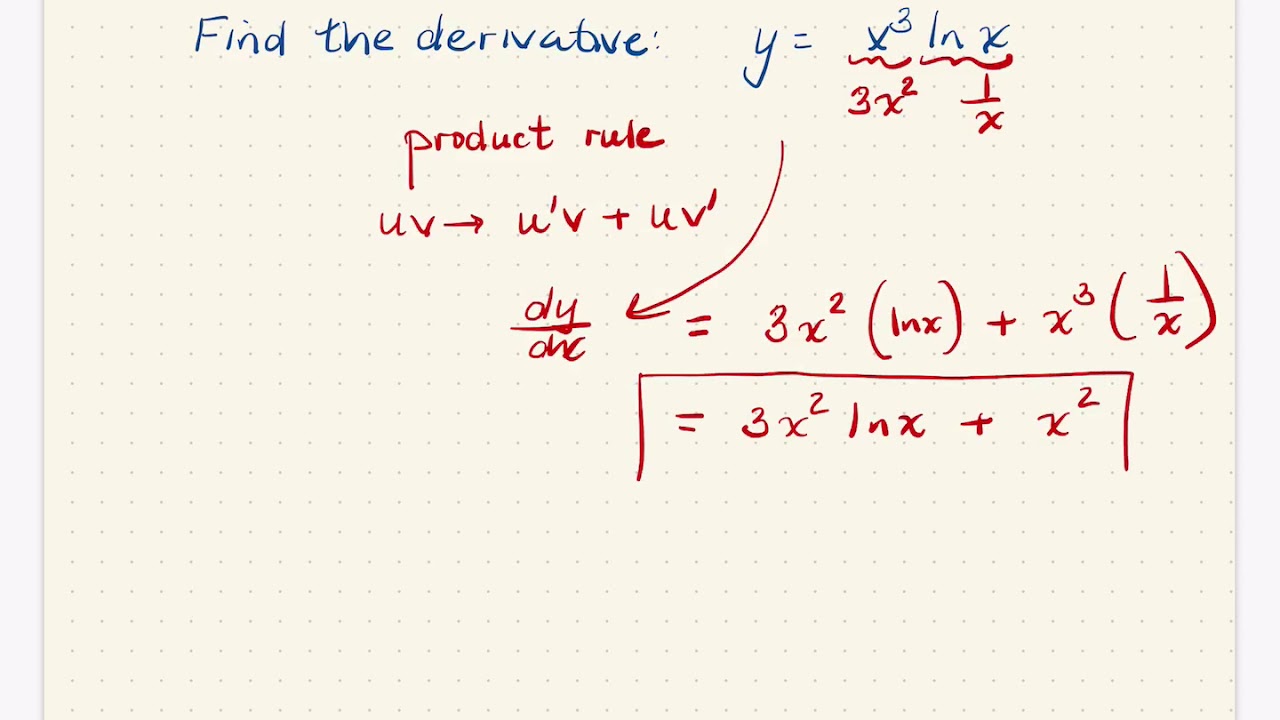 Find the derivative: y = x³ ln x
3x² 1/x
product rule
uv → u'v + uv'
dy/dx = 3x² (lnx) + x³ (1/x)
= 3x² lnx + x²